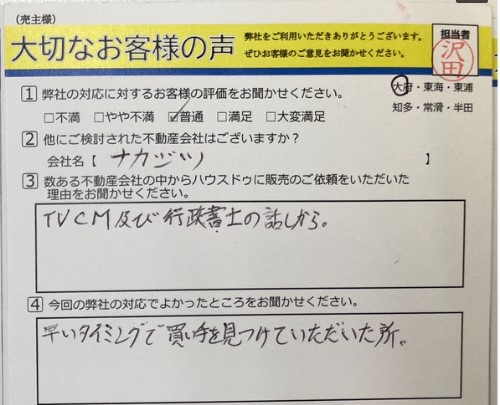 (売主様)
大切なお客様の声
弊社をご利用いただきありがとうございます。
ぜひお客様のご意見をお聞かせください。
担当者
沢田
1 弊社の対応に対するお客様の評価をお聞かせください。
□不満 □やや不満 ☑普通 □満足 □大変満足
大府・東海・東浦
知多・常滑・半田
2 他にご検討された不動産会社はございますか？
会社名【 ナカジツ 】
3 数ある不動産会社の中からハウスドゥに販売のご依頼をいただいた
理由をお聞かせください。
TVCM及び行政書士の話しから。
4 今回の弊社の対応でよかったところをお聞かせください。
早いタイミングで買い手を見つけていただいた所。